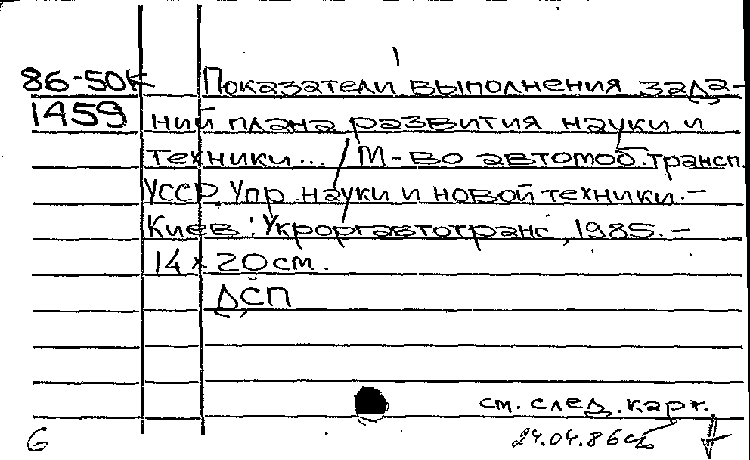 86-50К Показатели выполнения зада-
1459 ний плана развития науки и
техники... / М-во автомоб. трансп.
УССР, Упр. науки и новой техники. –
Киев : Укроргавтотранс, 1985. –
14 × 20 см.
ДСП
см. след. карт.
6 24.04.86